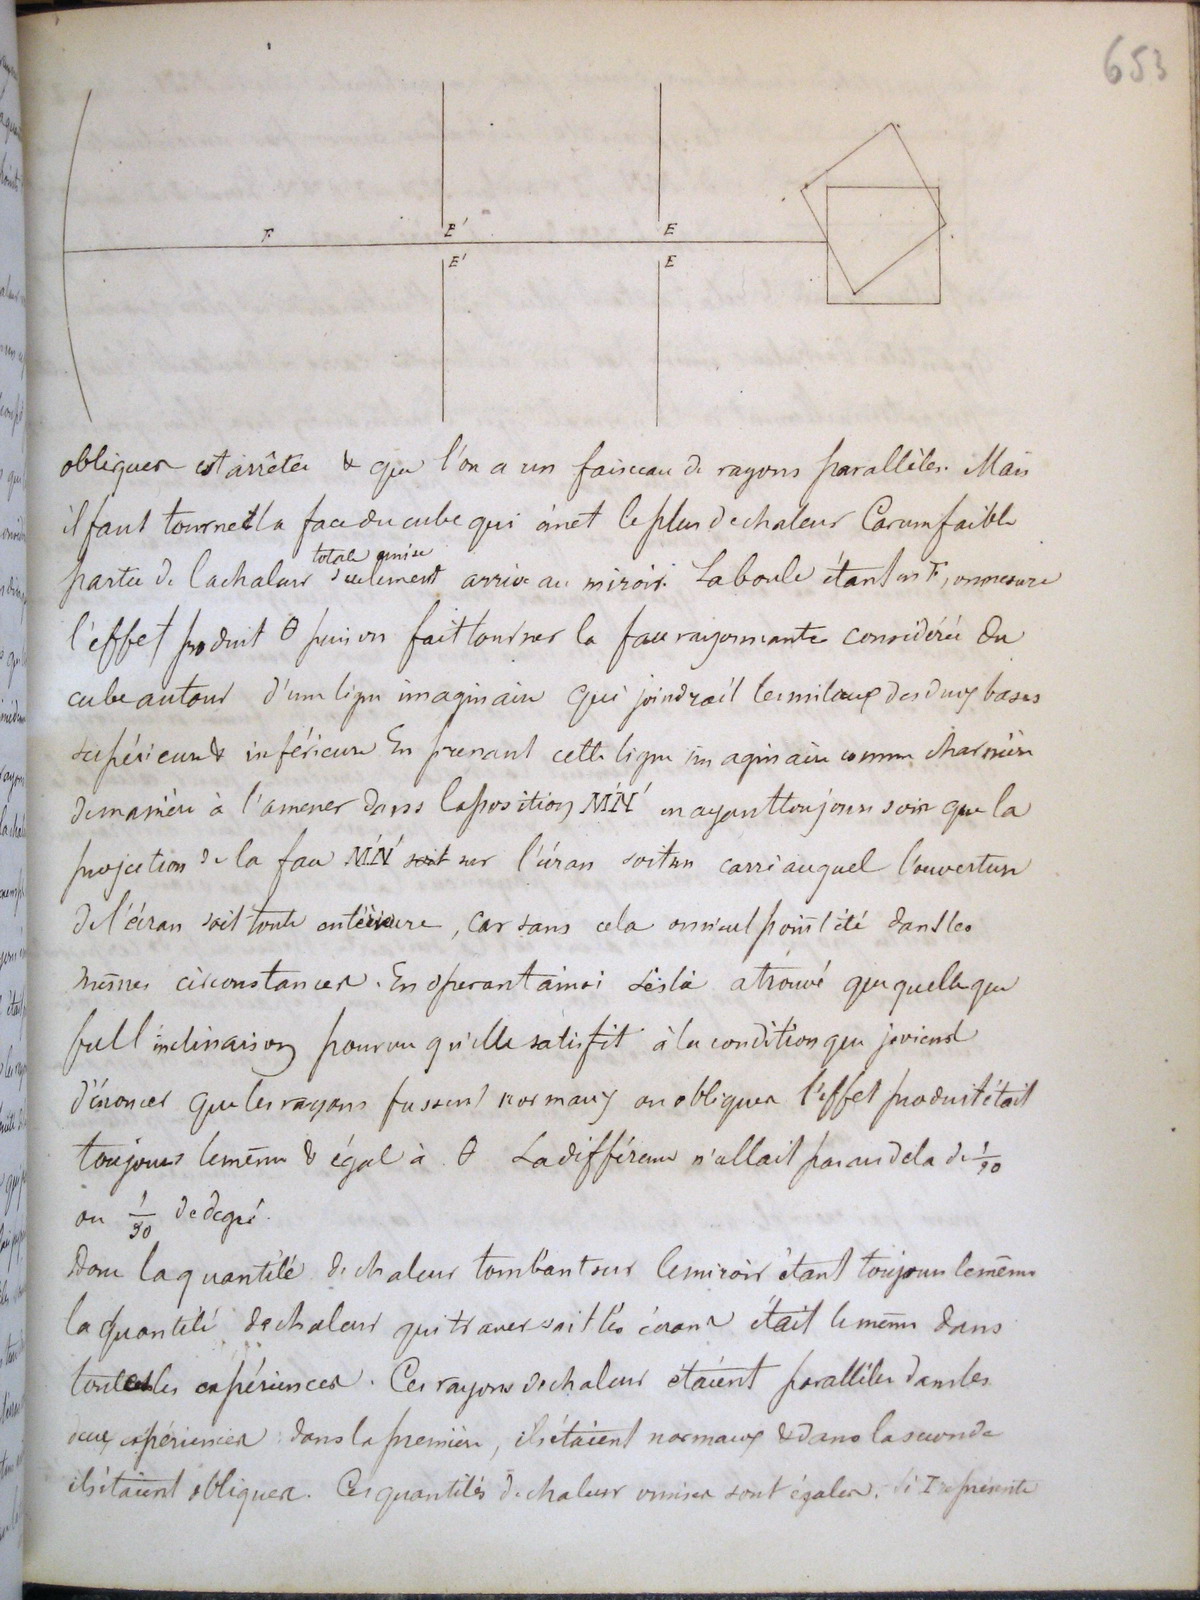 653
F E' E
E' E
obliques est arrêtée & que l'on a un faisceau de rayons parallèles. Mais
il faut tourner la face du cube qui émet le plus de chaleur Car une faible
totale émise
partie de la chaleur seulement arrive au miroir. La boule étant en F, on mesure
l'effet produit θ puis on fait tourner la face rayonnante considérée du
cube autour d'une ligne imaginaire qui joindrait les milieux des deux bases
supérieure & inférieure En prenant cette ligne imaginaire comme charnière
de manière à l'amener dans la position M'N' en ayant toujours soin que la
projection de la face M'N' soit sur l'écran soit un carré auquel l'ouverture
de l'écran soit toute intérieure, car sans cela on n'eut point été dans les
mêmes circonstances. En opérant ainsi Leslie a trouvé que quelle que
fut l'inclinaison pourvu qu'elle satisfit à la condition que je viens
d'énoncer que les rayons fussent normaux ou obliques l'effet produit était
toujours le même & égal à θ La différence n'allait pas au delà de 1/20
ou 1/30 de degré.
Donc la quantité de chaleur tombant sur le miroir étant toujours le même
la quantité de chaleur qui traversait les écrans était le même dans
toutes les expériences. Ces rayons de chaleur étaient parallèles dans les
deux expériences dans la première, ils étaient normaux & dans la seconde
ils étaient obliques. Ces quantités de chaleur émises sont égales. Si I représente